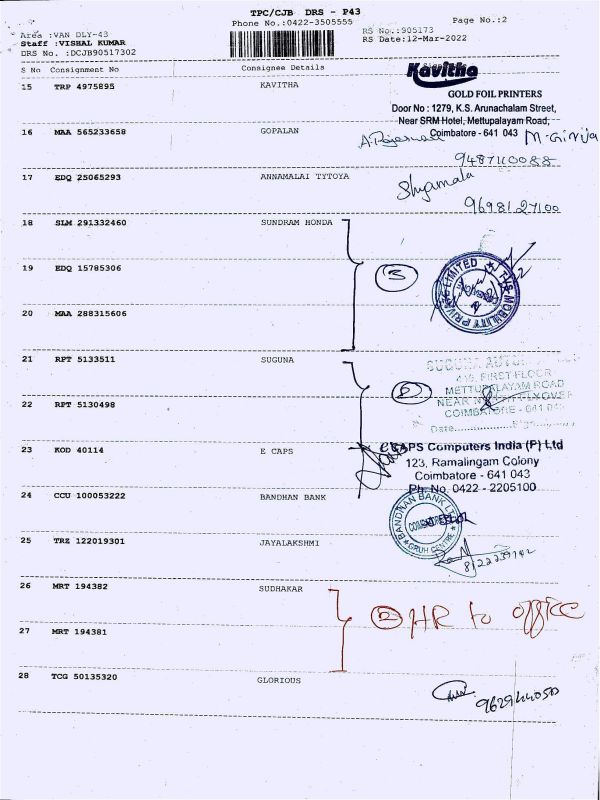 TPC/CJB DRS - P43
Phone No.:0422-3505555
Page No.:2
Area :VAN DLY-43
RS No.:905173
Staff :VISHAL KUMAR
RS Date:12-Mar-2022
DRS No. :DCJB90517302
S No Consignment No Consignee Details
15 TRP 4975895 KAVITHA
Kavitha
GOLD FOIL PRINTERS
Door No : 1279, K.S. Arunachalam Street,
Near SRM Hotel, Mettupalayam Road,
Coimbatore - 641 043
16 MAA 565233658 GOPALAN
M. Girija
17 EDQ 25065293 ANNAMALAI TYTOYA
Shyamala
9698127100
18 SLM 291332460 SUNDRAM HONDA
19 EDQ 15785306
3
20 MAA 288315606
21 RPT 5133511 SUGUNA
FIRST FLOOR
METTUPALAYAM ROAD
COIMBATORE - 641 043
Date
22 RPT 5130498
23 KOD 40114 E CAPS
CAPS Computers India (P) Ltd
123, Ramalingam Colony
Coimbatore - 641 043
Ph. No. 0422 - 2205100
24 CCU 100053222 BANDHAN BANK
BANDHAN BANK LTD
GRUH CENTRE
25 TRZ 122019301 JAYALAKSHMI
26 MRT 194382 SUDHAKAR
2 HR to office
27 MRT 194381
28 TCG 50135320 GLORIOUS